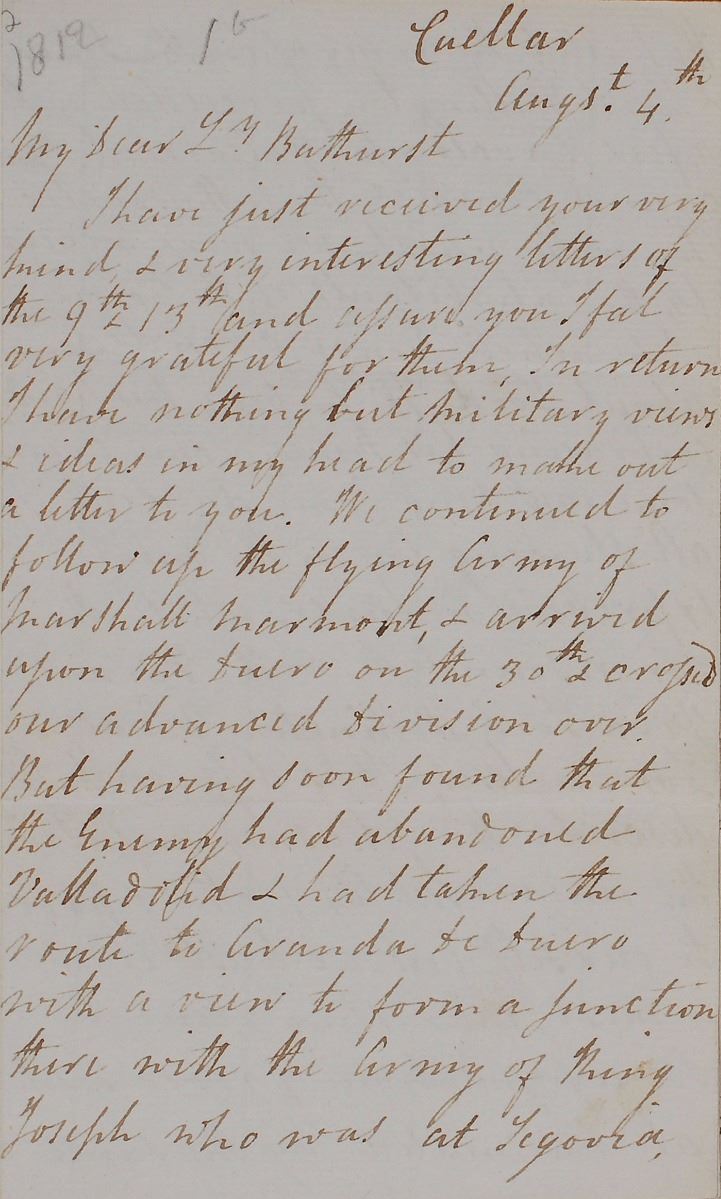 1812
Cuellar
Augs.t 4.th
My Dear Ly Bathurst
I have just received your very
kind, & very interesting letters of
the 9th & 13th and assure you I feel
very grateful for them, In return
I have nothing but Military views
& ideas in my head to make out
a letter to you. We continued to
follow up the flying Army of
Marshall Marmont, & arrived
upon the Duero on the 30th & crossed
our advanced Division over.
But having soon found that
the Enemy had abandoned
Valladolid & had taken the
route to Aranda de Duero
with a view to form a junction
there with the Army of King
Joseph who was at Segovia,